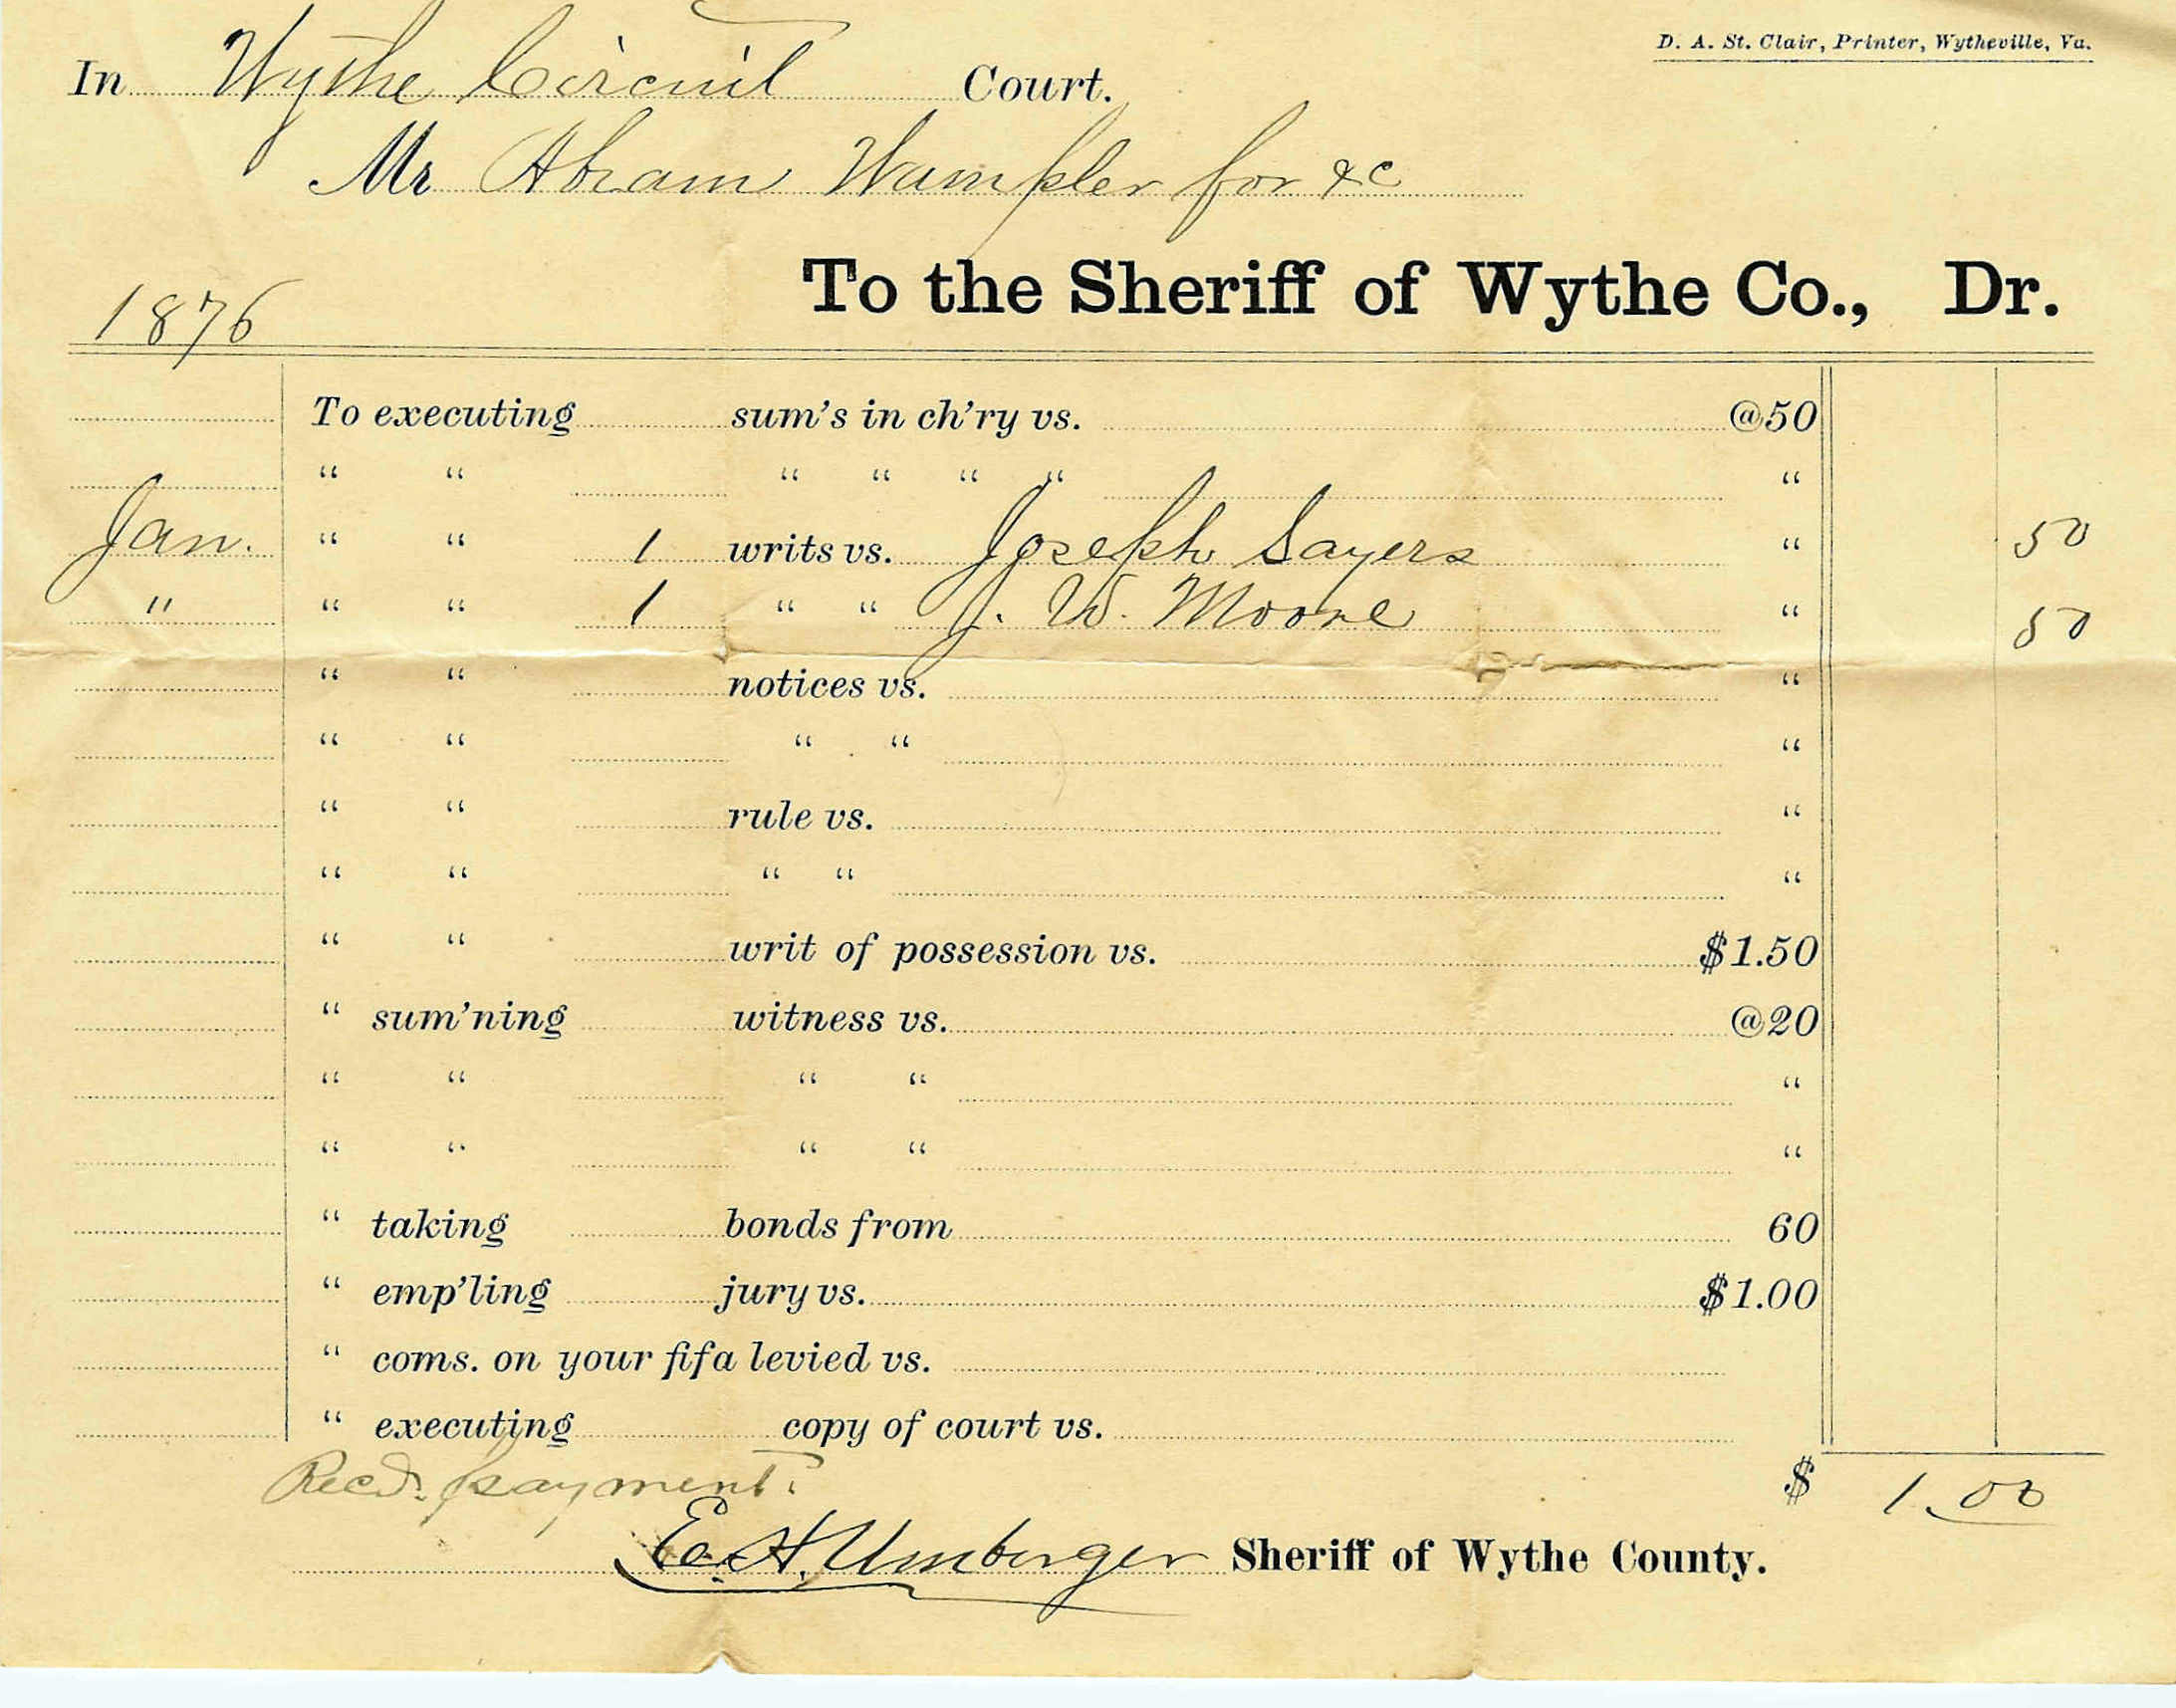 D. A. St. Clair, Printer, Wytheville, Va.
In Wythe Circuit Court.
Mr Abram Wampler for &c
To the Sheriff of Wythe Co., Dr.
1876
To executing sum's in ch'ry vs. @50
" " " " " " "
Jan. " " 1 writs vs. Joseph Sayers " 50
" " " 1 " " J. W. Moore " 50
" " notices vs. "
" " " " "
" " rule vs. "
" " " " "
" " writ of possession vs. $1.50
" sum'ning witness vs. @20
" " " " "
" " " " "
" taking bonds from 60
" emp'ling jury vs. $1.00
" coms. on your fifa levied vs.
" executing copy of court vs.
Recd. payment. $ 1.00
E. H. Umberger Sheriff of Wythe County.